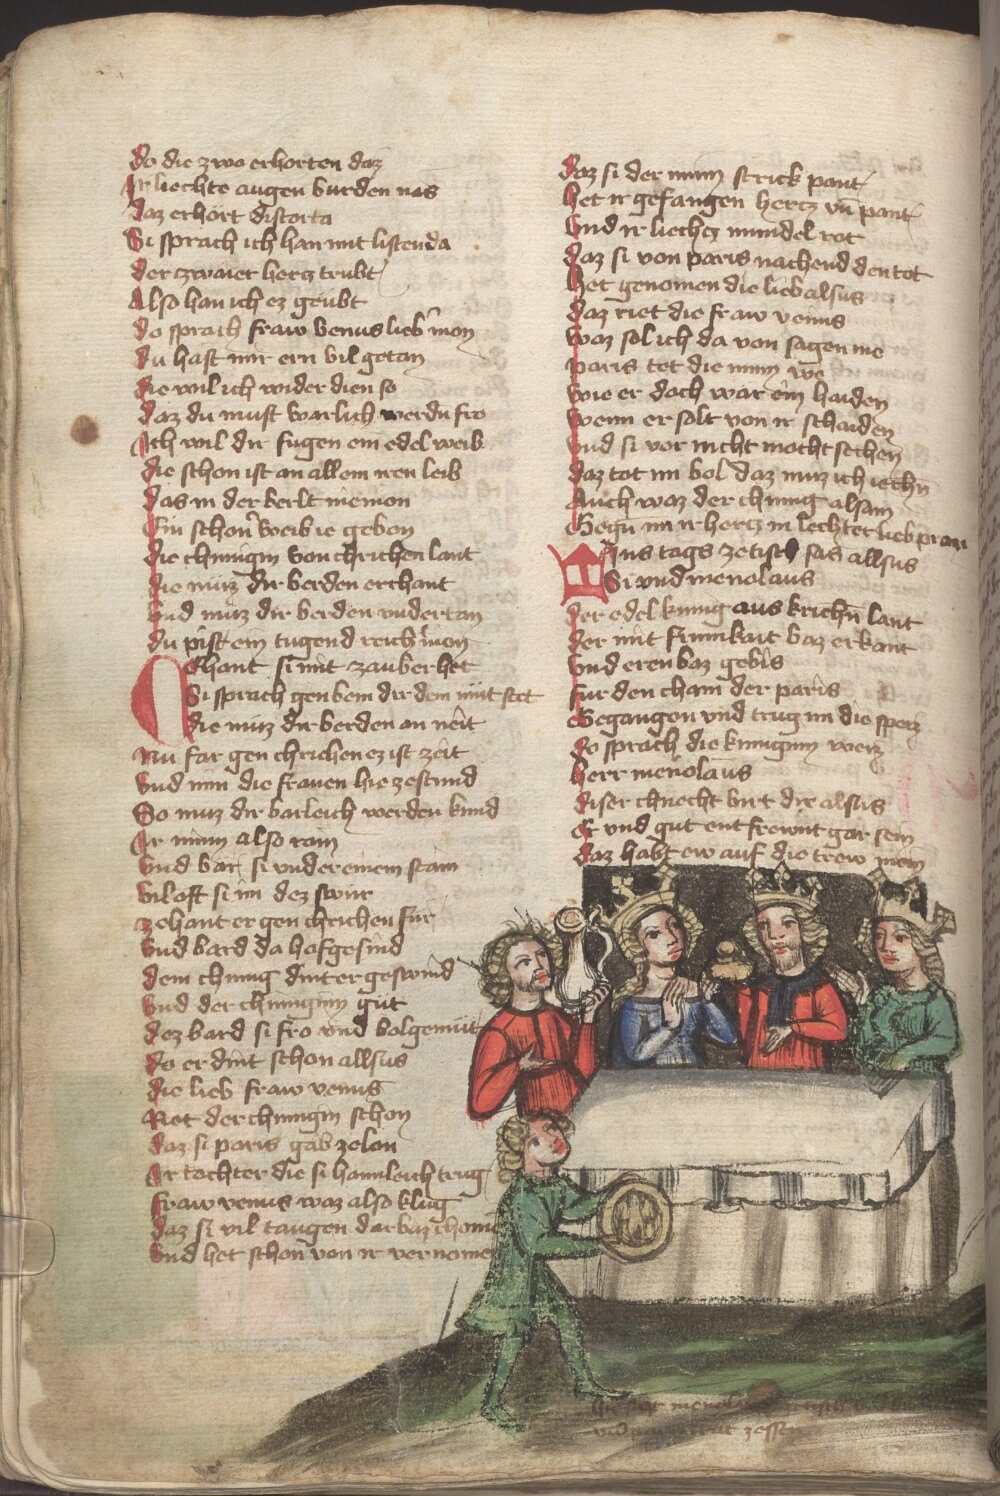 do die zwo erhorten daz
Ir liechte augen burden nas
Daz erhort discorta
Si sprach ich han mit listen da
der zwaier hercz trubt
Also han ich ez geubt
do sprach fraw Venus lieb mon
du hast mir ern vil getan
die wil ich wider dien so
daz du must warlich werdn fro
Ich wil dir fugen ein edel weib
die schon ist an allem iren leib
das in der berlt niemon
Ein schonr weib ie gebon
die chunigin von chrichen lant
die muz dir berden erchant
und muz dir berden undertan
du pist ein tugend reichr mon
Zehant si mit zauber het
Si sprach gen dem dir dem mut stet
die muz dir berden an neit
Nu far gen chrichen ez ist zeit
und nim die frauen hie zestund
So muz dir barleich werden kund
Ir minn also rain
und bar si under einem stain
vil oft si im dez swur
zehant er gen chrichen fur
und bard da hofgesind
dem chunig dint er geswind
und der chuniginn gut
dez bard si fro und bolgemut
do er dint schon allsus
die lieb fraw venus
Riet der chunigin schon
daz si paris gab zelon
Ir tochter die si haimleich trug
fraw venus waz also klug
daz si vil taugen dar baz chomn
und het schon von ir vernomen
daz si der minn strick pant
het ir gefangen hercz vn pant
und ir liechcz mundel rot
daz si von paris nachend den tot
het genomen die lieb alsus
daz riet die fraw venus
waz sol ich da von sagen me
paris tet die minn we
wie er doch war ein haiden
wenn er solt von ir schaiden
und si vor nicht mocht sechen
daz tot im bol daz muz ich iechn
Auch waz der chunig alsam
Gegn im ir hercz in lechter lieb pran
Eins tags ze tisch sas allsus
Si und menolaus
der edel kunig aus kriechn lant
der mit frumkait baz erkant
und eren baz gebis
fur den cham der paris
Gegangen und trug im die speis
do sprach die kuniginn weis
herr menolaus
diser chnecht birt die alsus
Er und gut ent frewnt gar sein
daz habt ew auf die trew mein